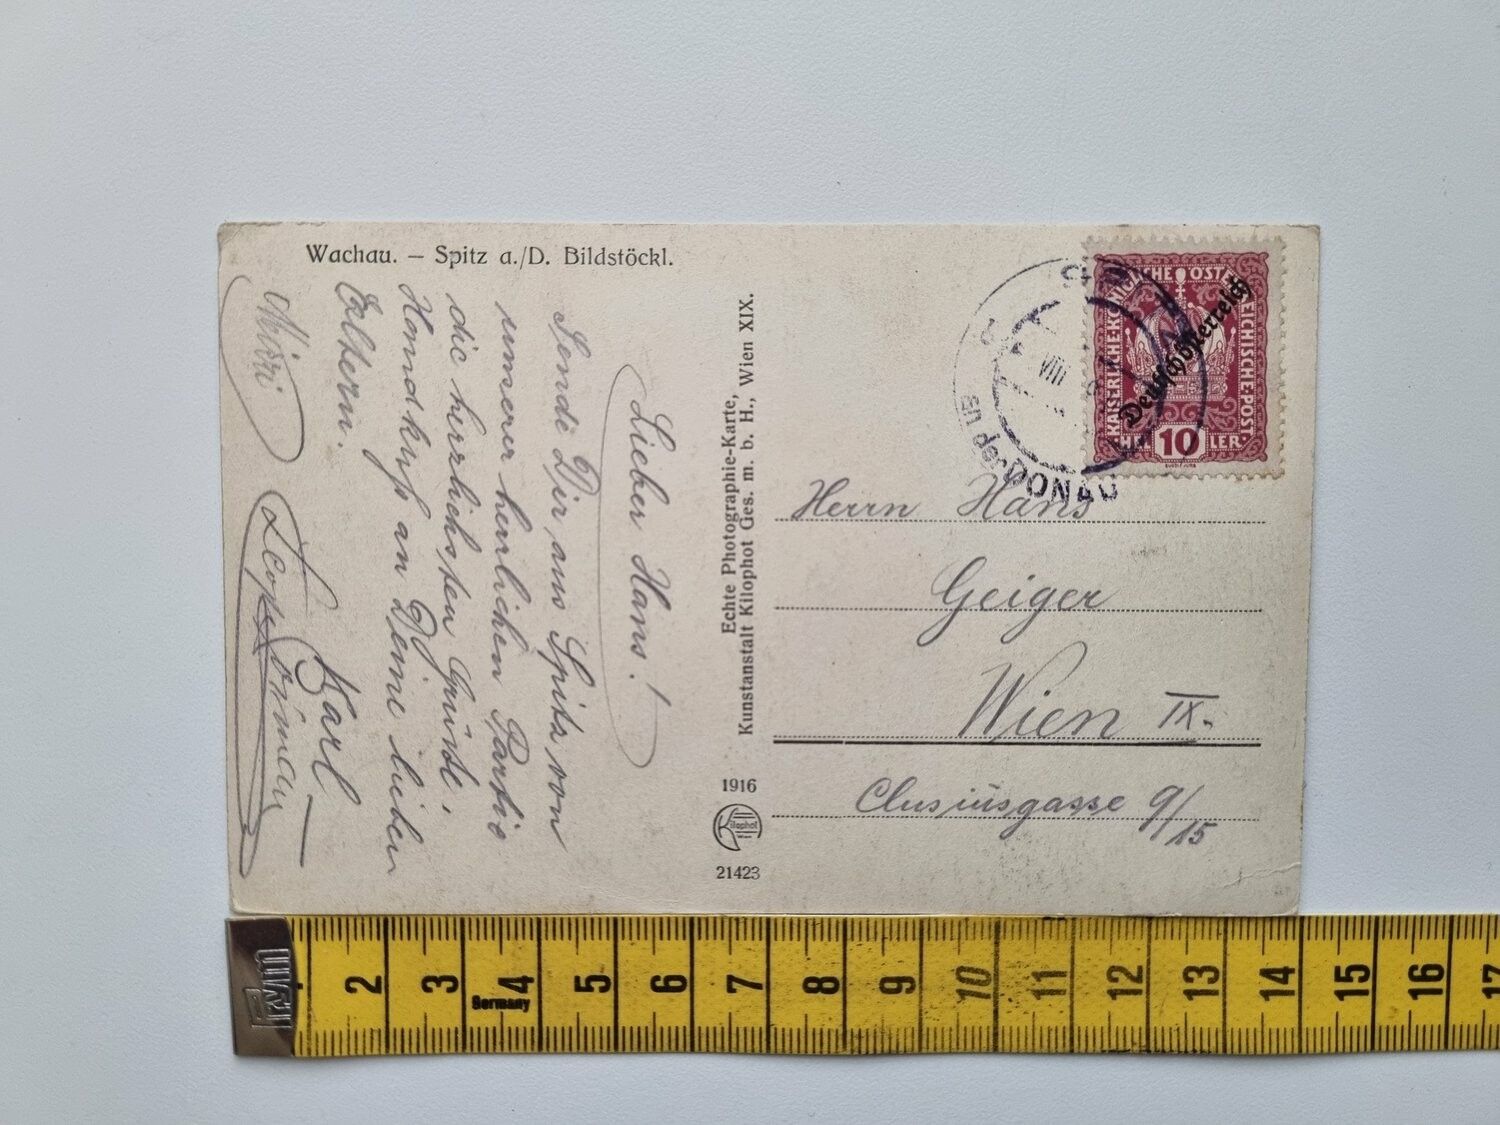 Wachau. — Spitz a./D. Bildstöckl.
Lieber Hans!
Sende Dir aus Spitz von
unserer herrlichen Partie
die herzlichsten Grüße.
Handkuß an Deine lieben
Eltern.
Karl
Mizzi
Echte Photographie-Karte,
Kunstanstalt Kilophot Ges. m. b. H., Wien XIX.
1916
Kilophot
Wien
21423
KAISERLICHE KÖNIGLICHE ÖSTERREICHISCHE POST
Deutschösterreich
HELLER
10
an der DONAU
VIII
Herrn Hans
Geiger
Wien IX.
Clusiusgasse 9/15
Prym
Germany
2 3 4 5 6 7 8 9 10 11 12 13 14 15 16 17